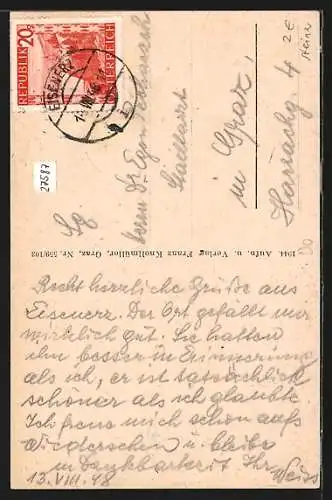 20g
REPUBLIK
ÖSTERREICH
EISENERZ
27587
2€
Steier
Sg
Herrn Dr. Egon
Stadtarzt
in Graz,
Harrachg 4
1944. Aufn. u. Verlag Franz Knollmüller, Graz, Nr. 559/102
Recht herzliche Grüße aus
Eisenerz. Der Ort gefällt mir
wirklich gut. Sie hatten
ihn besser in Erinnerung
als ich, er ist tatsächlich
schöner als ich glaubte
Ich freue mich schon aufs
Wiedersehen u. bleibe
in Dankbarkeit Ihr
Weiss
13.VIII.48